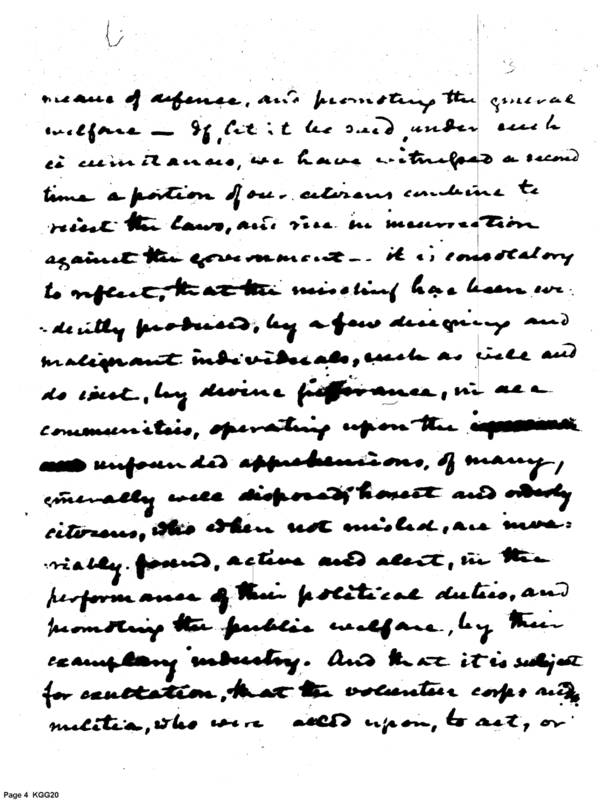 means of defence, and promoting the general
welfare — If, let it be said, under such
circumstances, we have witnessed a second
time a portion of our citizens combine to
resist the laws, and rise in insurrection
against the government — it is consolatory
to reflect, that the mischief has been evi-
-dently produced, by a few designing and
malignant individuals, such as will and
do exist, by divine sufferance, in all
communities, operating upon the
unfounded apprehensions, of many,
generally well disposed, honest and orderly
citizens, who when not misled, are inva=
riably found, active and alert, in the
performance of their political duties, and
promoting the public welfare, by their
exemplary industry. And that it is subject
for exultation, that the volunteer corps and
militia, who were called upon, to act, or
Page 4 KGG20